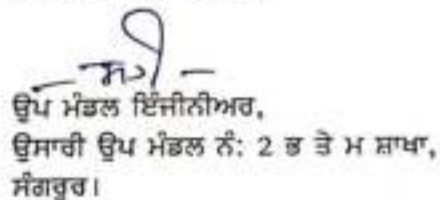 ਸਹੀ
ਉਪ ਮੰਡਲ ਇੰਜੀਨੀਅਰ,
ਉਸਾਰੀ ਉਪ ਮੰਡਲ ਨੰ: 2 ਭ ਤੇ ਮ ਸ਼ਾਖਾ,
ਸੰਗਰੂਰ।